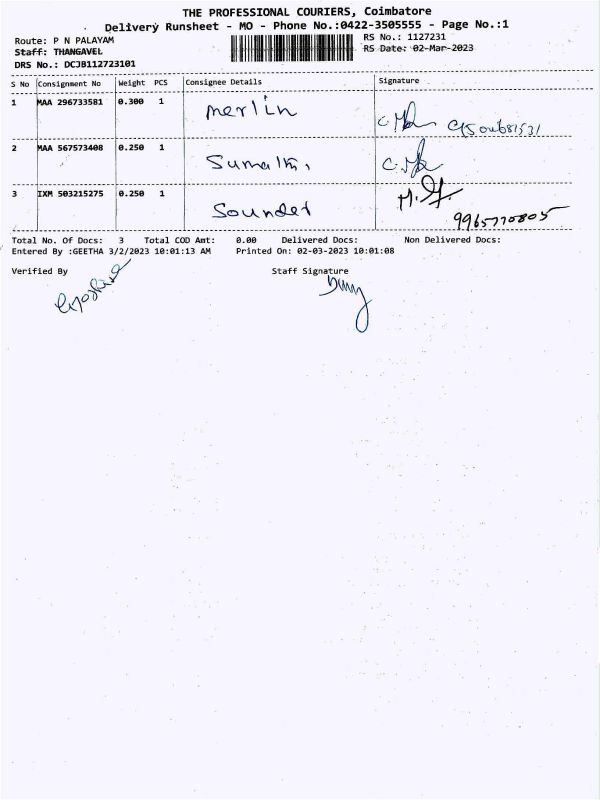 THE PROFESSIONAL COURIERS, Coimbatore
Delivery Runsheet - MO - Phone No.:0422-3505555 - Page No.:1
Route: P N PALAYAM
RS No.: 1127231
Staff: THANGAVEL
RS Date: 02-Mar-2023
DRS No.: DCJB112723101
S No Consignment No Weight PCS Consignee Details Signature
1 MAA 296733581 0.300 1 merlin
2 MAA 567573408 0.250 1 Sumathi
3 IXM 503215275 0.250 1
9965770805
Total No. Of Docs: 3 Total COD Amt: 0.00 Delivered Docs: Non Delivered Docs:
Entered By :GEETHA 3/2/2023 10:01:13 AM Printed On: 02-03-2023 10:01:08
Verified By Staff Signature